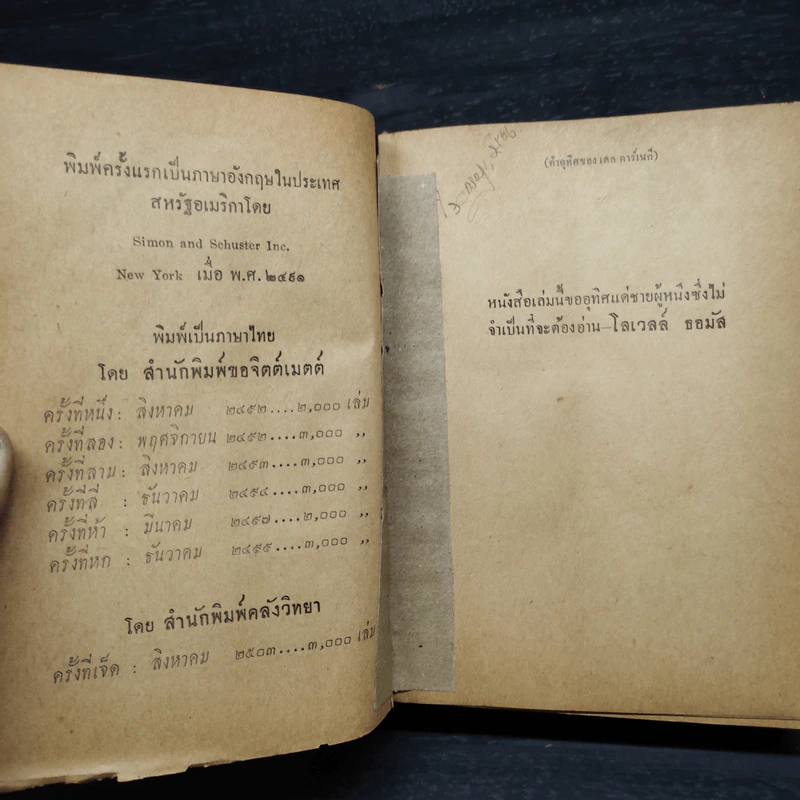 พิมพ์ครั้งแรกเป็นภาษาอังกฤษในประเทศ
สหรัฐอเมริกาโดย
Simon and Schuster Inc.
New York เมื่อ พ.ศ. ๒๔๙๑
พิมพ์เป็นภาษาไทย
โดย สำนักพิมพ์ขอจิตต์เมตต์
ครั้งที่หนึ่ง : สิงหาคม ๒๔๙๒....๒,๐๐๐ เล่ม
ครั้งที่สอง : พฤศจิกายน ๒๔๙๒....๓,๐๐๐ ,,
ครั้งที่สาม : สิงหาคม ๒๔๙๓....๓,๐๐๐ ,,
ครั้งที่สี่ : ธันวาคม ๒๔๙๔....๓,๐๐๐ ,,
ครั้งที่ห้า : มีนาคม ๒๔๙๗....๒,๐๐๐ ,,
ครั้งที่หก : ธันวาคม ๒๔๙๙....๓,๐๐๐ ,,
โดย สำนักพิมพ์คลังวิทยา
ครั้งที่เจ็ด : สิงหาคม ๒๕๐๓....๓,๐๐๐ เล่ม
(คำอุทิศของ เดล คาร์เนกี)
หนังสือเล่มนี้ขออุทิศแด่ชายผู้หนึ่งซึ่งไม่
จำเป็นที่จะต้องอ่าน–โลเวลล์ ธอมัส